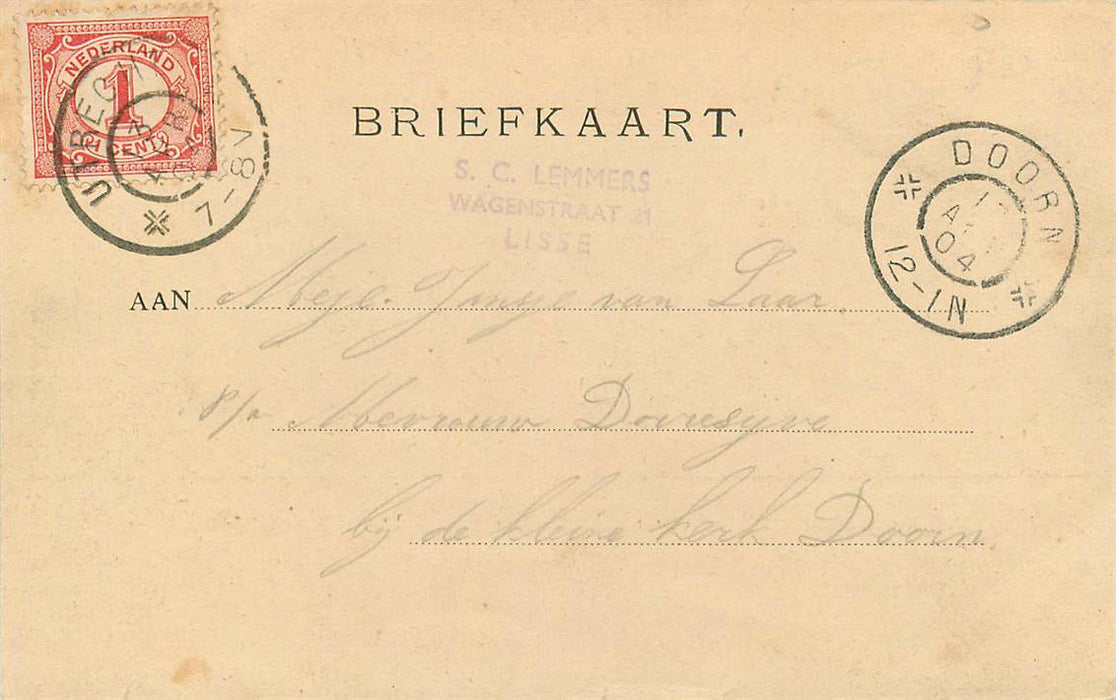 NEDERLAND
1
CENT
UTRECHT
7-8V
BRIEFKAART.
S. C. LEMMERS
WAGENSTRAAT 21
LISSE
DOORN
04
12-1N
AAN Mejc. Jansje van Laar
p/a Mevrouw
bij de kleine kerk Doorn